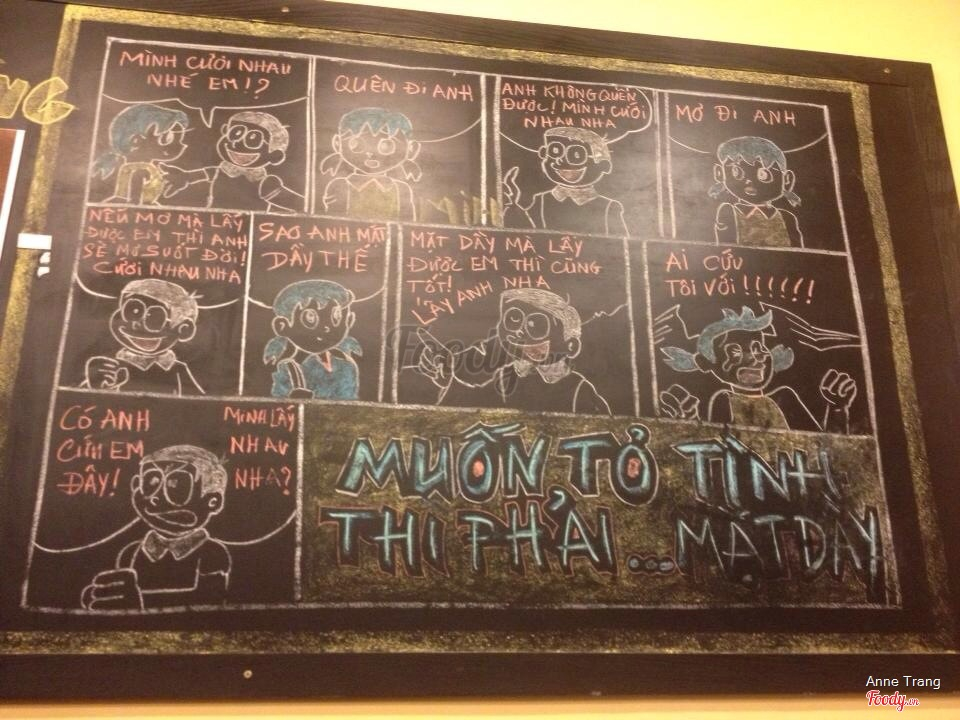 NG
MÌNH CƯỚI NHAU
NHÉ EM!?
QUÊN ĐI ANH
ANH KHÔNG QUÊN
ĐƯỢC! MÌNH CƯỚI
NHAU NHA
MƠ ĐI ANH
NẾU MƠ MÀ LẤY
ĐƯỢC EM THÌ ANH
SẼ MƠ SUỐT ĐỜI!
CƯỚI NHAU NHA
SAO ANH MẶT
DẦY THẾ
MẶT DẦY MÀ LẤY
ĐƯỢC EM THÌ CŨNG
TỐT!
LẤY ANH NHA
AI CỨU
TÔI VỚI!!!!!!
CÓ ANH
CỨU EM
ĐÂY!
MÌNH LẤY
NHAU
NHA?
MUỐN TỎ TÌNH
THI PHẢI ... MẶT DÀY
Foody.vn
Anne Trang
Foody.vn